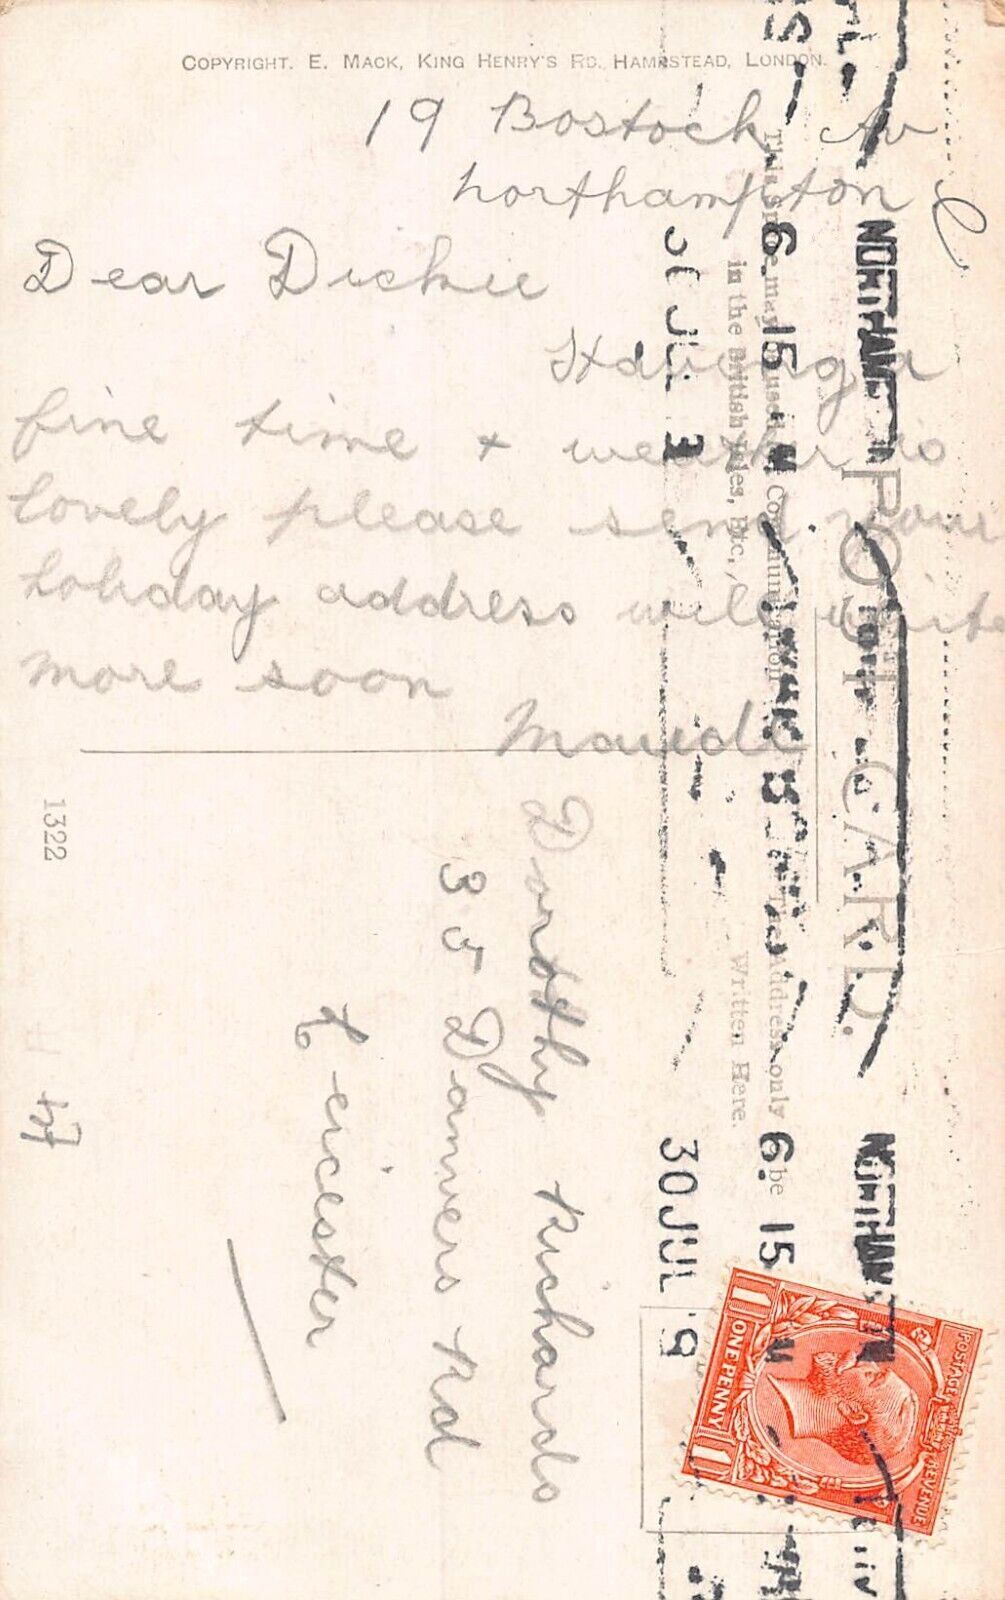 COPYRIGHT. E. MACK, KING HENRY'S RD. HAMPSTEAD, LONDON.
19 Bostock Av
Northampton
Dear Dickie
Having a
fine time + weather is
lovely please send your
holiday address will write
more soon
Maude
POST CARD.
This Space may be used for Communication
in the British Isles, Etc.
The Address only to be
Written Here.
Dorothy Richards
35 Danvers Rd
Leicester
1322
NORTHAMPTON
6. 15 PM
30 JUL
NORTHAMPTON
6. 15 PM
30 JUL
POSTAGE REVENUE
ONE PENNY
1 1